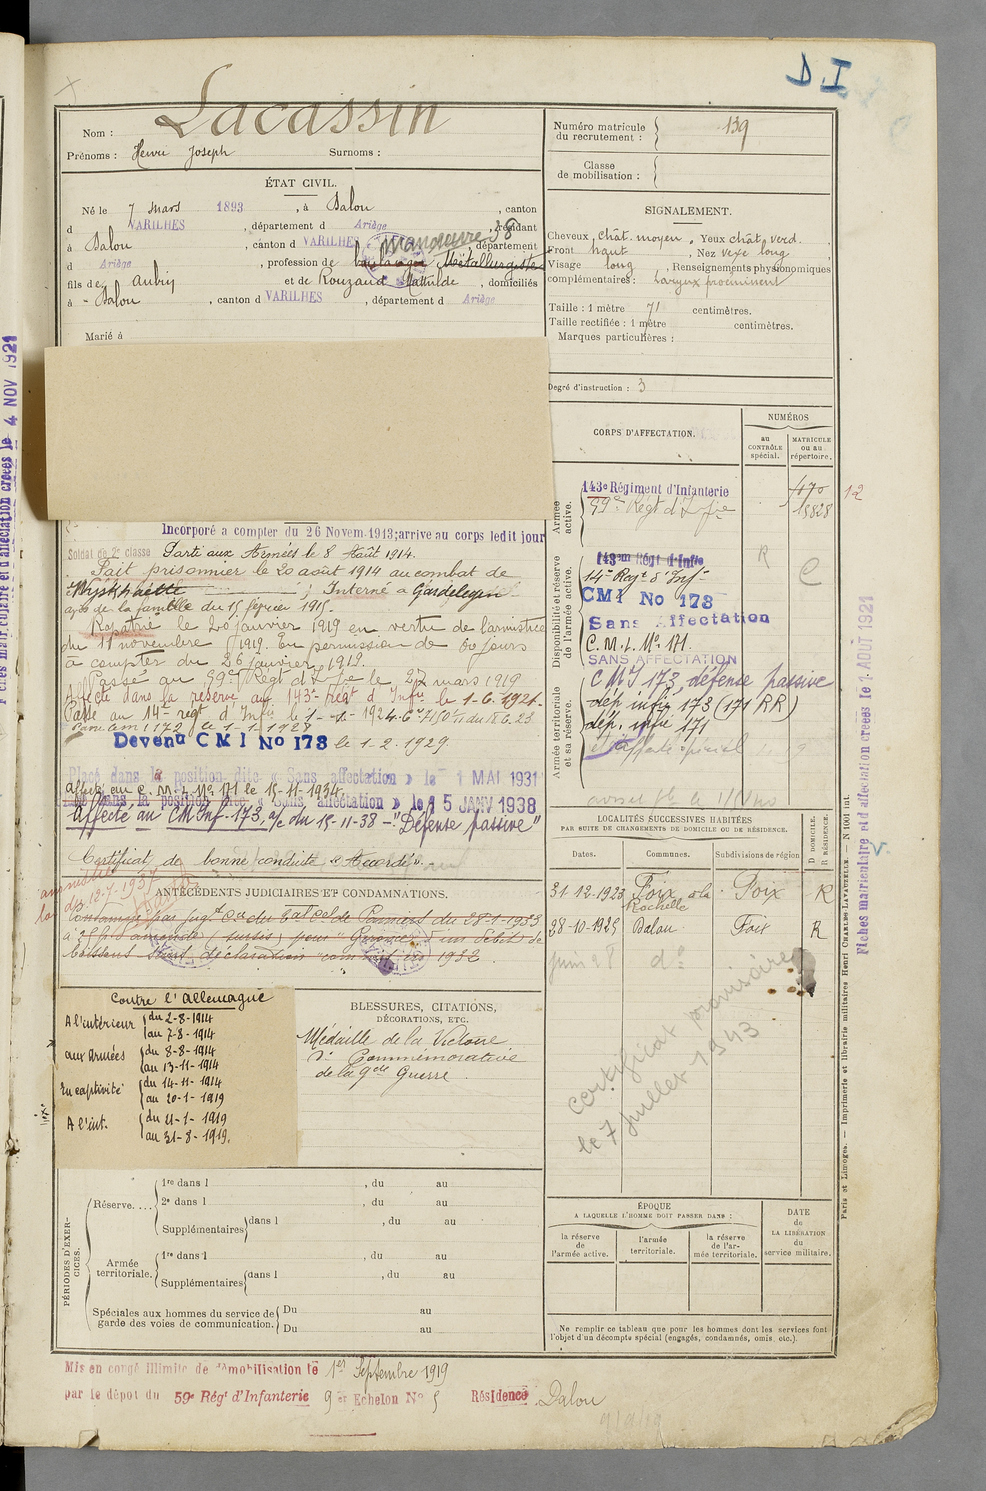 D.I
Lacassin
Nom :
Prénoms : Henri Joseph Surnoms :
ÉTAT CIVIL.
Né le 7 mars 1893, à Dalou, canton
d VARILHES, département d Ariège, résidant
à Dalou, canton d VARILHES, département
manœuvre 38
d Ariège, profession de boulanger Métallurgiste
fils de Aubin et de Rouzaud Mathilde, domiciliés
à Dalou, canton d VARILHES, département d Ariège
Marié à
Numéro matricule
du recrutement : 139
Classe
de mobilisation :
SIGNALEMENT.
Cheveux chât. moyen, Yeux chât. verd.
Front haut, Nez vexe long
Visage long, Renseignements physionomiques
complémentaires : Larynx proéminent
Taille : 1 mètre 71 centimètres.
Taille rectifiée : 1 mètre centimètres.
Marques particulières :
Degré d'instruction : 3
CORPS D'AFFECTATION.
NUMÉROS
au
CONTRÔLE
spécial.
MATRICULE
ou au
répertoire.
Armée
active.
143e Régiment d'Infanterie
99e Régt d'Infie
470
15828
12
Disponibilité et réserve
de l'armée active.
143me Régt d'Infie
14e Régt d'Infie
CMI No 173
Sans Affectation
C.M.I. No 171.
SANS AFFECTATION
R
C
Armée territoriale
et sa réserve.
CMI 173, défense passive
dép. infie 173 (171 RR)
dép. infie 171
Incorporé à compter du 26 Novem. 1913; arrivé au corps ledit jour
Soldat de 2e classe Parti aux Armées le 8 Août 1914.
Fait prisonnier le 20 août 1914 au combat de
; Interné à Gardelegen
avis de la famille du 15 février 1915.
Rapatrié le 20 janvier 1919 en vertu de l'armistice
du 11 novembre 1919. En permission de 60 jours
à compter du 26 janvier 1919.
Passé au 99e Régt d'Infie le 22 mars 1919
Affecté dans la réserve au 143e régt d'Infie le 1-6-1921.
Passé au 14e regt d'Infie le 1-1-1924
le 1-1-1928
Devenu CMI No 173 le 1-2-1929.
Placé dans la position dite « Sans affectation » le 1 MAI 1931
affecté au C.M.I. No 171 le 15-11-1934.
dans la position dite « Sans affectation » le 15 JANV 1938
Affecté au CM Inf. 173, a/c du 15-11-38 - "Défense passive"
Certificat de bonne conduite « Accordé ».
amnistié
12-7-1937
ANTÉCÉDENTS JUDICIAIRES ET CONDAMNATIONS.
Condamné par jugt du Bal de Pamiers du 28-1-1933
à 25f d'amende (sursis) pour "Gérance d'un débit de
boissons sans déclaration" 1932.
Contre l'Allemagne
A l'intérieur du 2-8-1914
au 7-8-1914
aux Armées du 8-8-1914
au 13-11-1914
En captivité du 14-11-1914
au 20-1-1919
A l'int. du 21-1-1919
au 31-8-1919.
BLESSURES, CITATIONS,
DÉCORATIONS, ETC.
Médaille de la Victoire
de Commémorative
de la gde Guerre
LOCALITÉS SUCCESSIVES HABITÉES
PAR SUITE DE CHANGEMENTS DE DOMICILE OU DE RÉSIDENCE.
Dates.
Communes.
Subdivisions de région.
D. DOMICILE.
R. RÉSIDENCE.
31-12-1923 Foix Foix R
28-10-1925 Dalou Foix R
juin 28 do
certificat provisoire
le 7 juillet 1943
PÉRIODES D'EXERCICES.
Réserve....
1re dans l , du au
2e dans l , du au
Supplémentaires dans l , du au
Armée
territoriale.
1re dans l , du au
Supplémentaires dans l , du au
Spéciales aux hommes du service de
garde des voies de communication.
Du au
Du au
ÉPOQUE
A LAQUELLE L'HOMME DOIT PASSER DANS :
la réserve
de
l'armée active.
l'armée
territoriale.
la réserve
de l'ar-
mée territoriale.
DATE
de
LA LIBÉRATION
du
service militaire.
Ne remplir ce tableau que pour les hommes dont les services font
l'objet d'un décompte spécial (engagés, condamnés, omis, etc.).
Mis en congé illimité de démobilisation le 1er Septembre 1919
par le dépôt du 59e Régt d'Infanterie 9e Echelon No 5 Résidence Dalou
Paris et Limoges. — Imprimerie et librairie militaires Henri CHARLES-LAVAUZELLE.
Fiches matriculaire et d'affectation créées le 1 AOUT 1921
4 NOV 1921